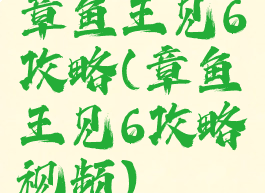 章鱼王见6
攻略(章鱼
王见6攻略
视频)